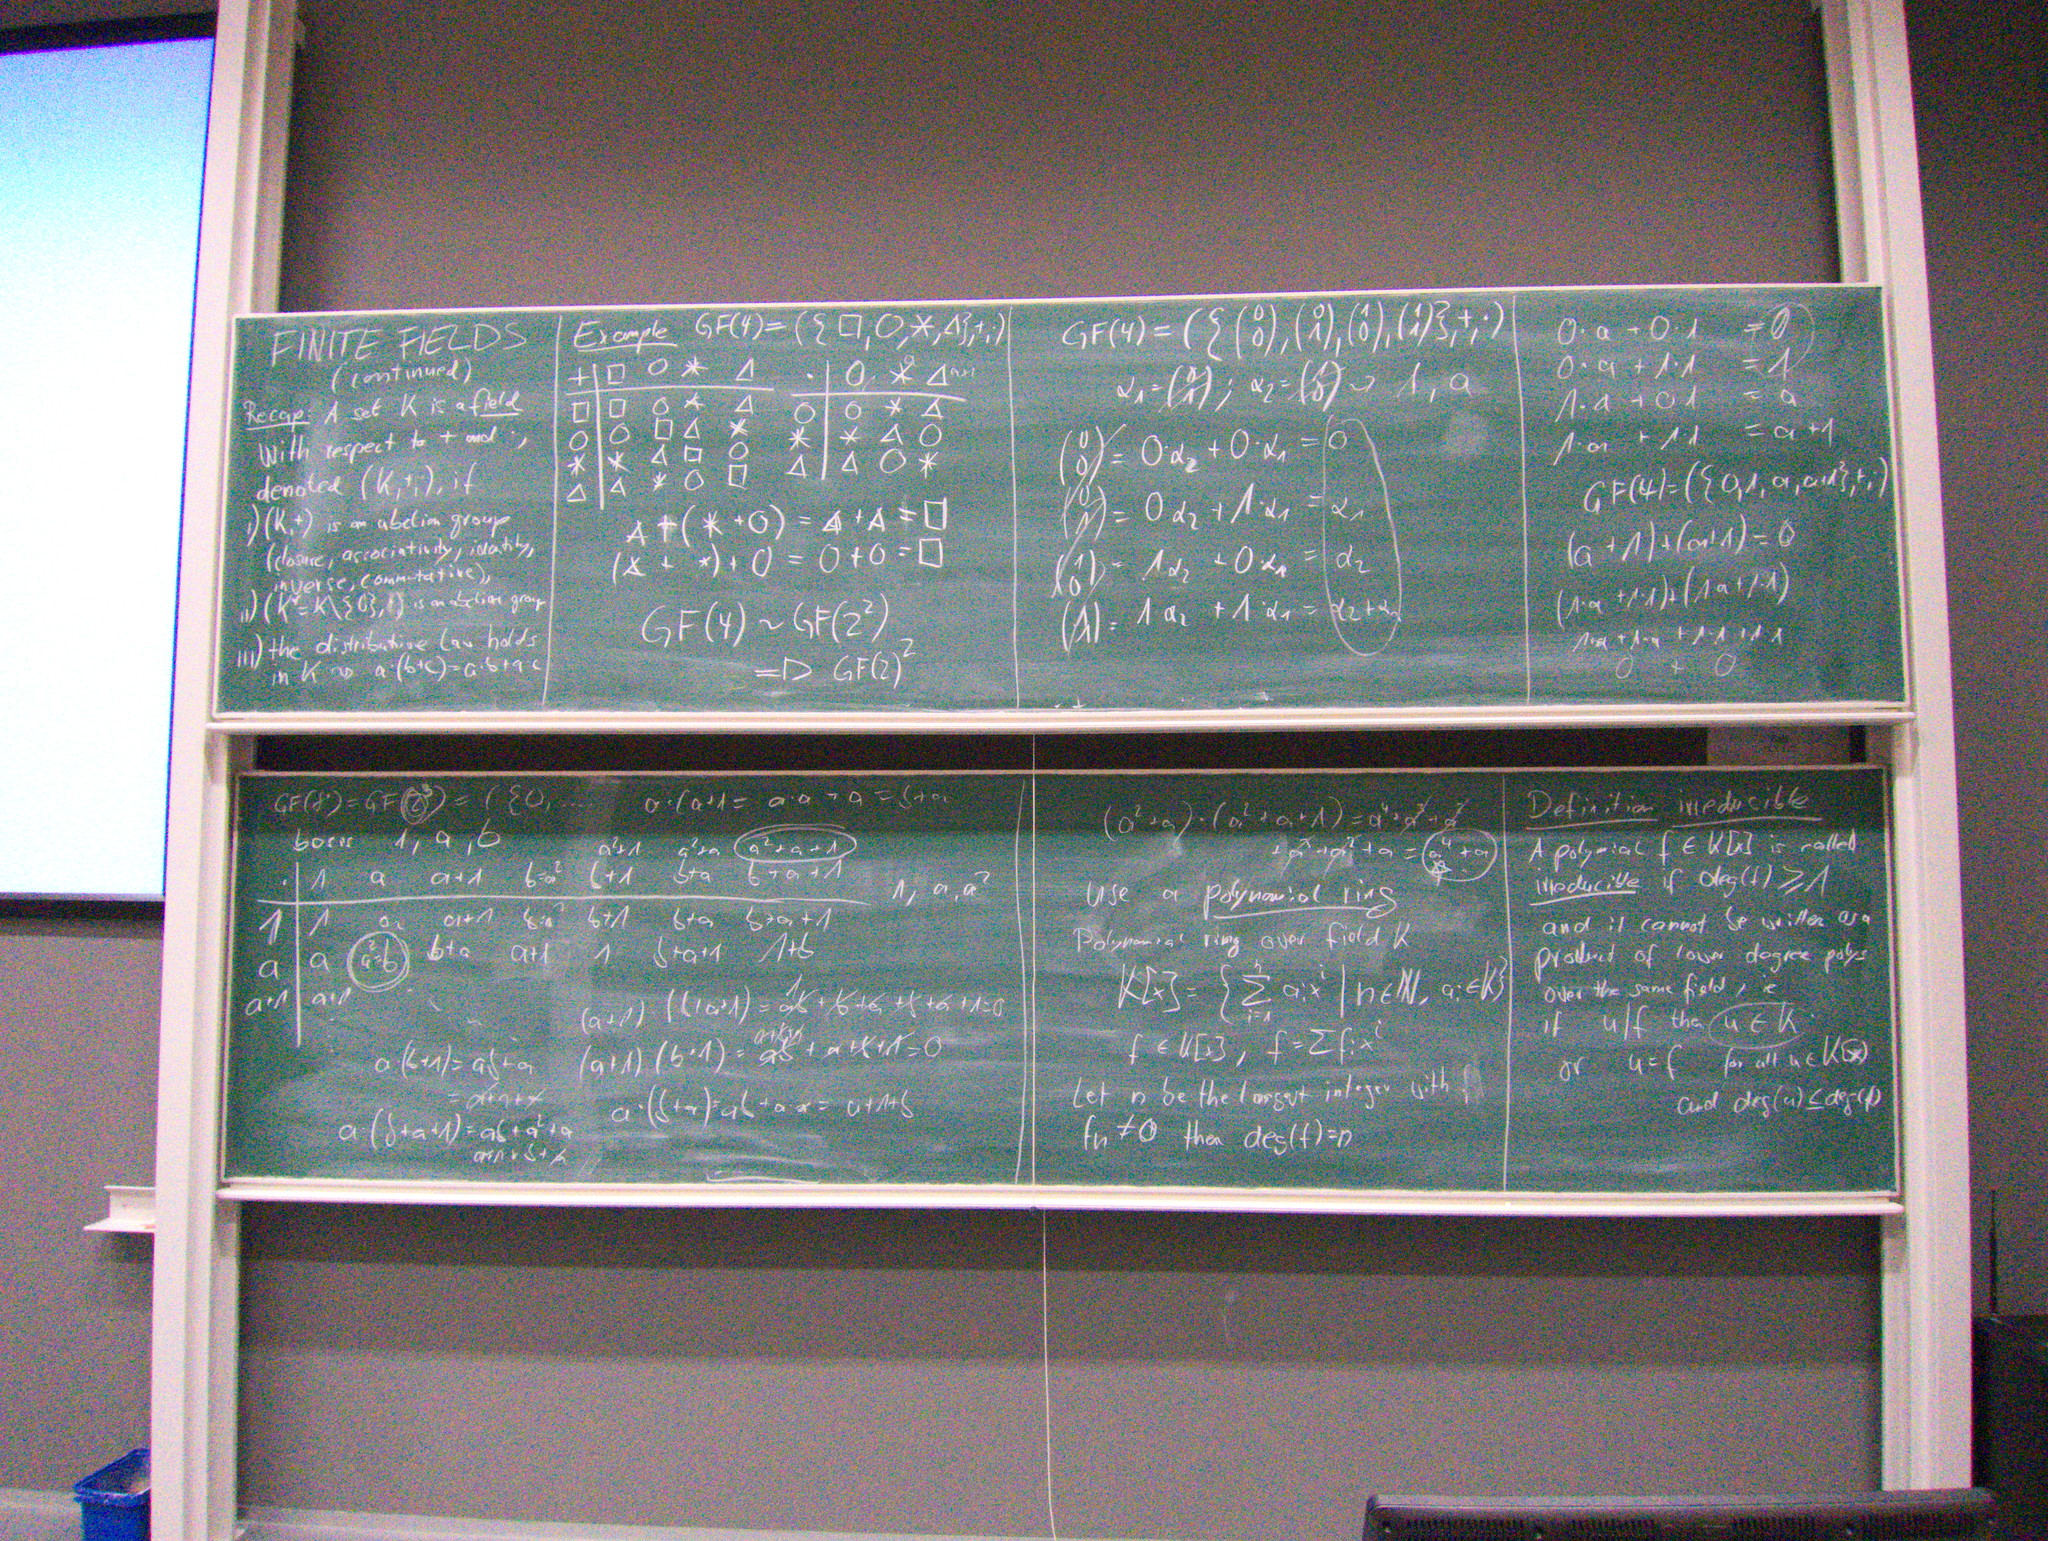 FINITE FIELDS
(continued)
Recap: A set K is a field
with respect to + and ·,
denoted (K,+,·), if
i) (K,+) is an abelian group
(closure, associativity, identity,
inverse, commutative),
ii) (K* = K\{0},·) is an abelian group
iii) the distributive law holds
in K ~> a·(b+c)=a·b+a·c
Example GF(4)=({□,O,*,Δ},+,·)
+ □ O * Δ
□ □ O * Δ
O O □ Δ *
* * Δ □ O
Δ Δ * O □
· O * Δ
a a+1
O O * Δ
* * Δ O
Δ Δ O *
Δ+(*+O) = Δ+Δ = □
(Δ + *)+O = O+O = □
GF(4) ~ GF(2²)
=D GF(2)²
GF(4) = ({(0 0), (0 1), (1 0), (1 1)},+,·)
α₁=(0 1); α₂=(1 0) ~> 1, a
(0 0) = 0·α₂ + 0·α₁ = 0
(0 1) = 0α₂ + 1·α₁ = α₁
(1 0) = 1α₂ + 0·α₁ = α₂
(1 1) = 1α₂ + 1·α₁ = α₂+α₁
0·a + 0·1 = 0
0·a + 1·1 = 1
1·a + 0·1 = a
1·a + 1·1 = a+1
GF(4)=({0,1,a,a+1},+,·)
(a+1)+(a+1)=0
(1·a+1·1)+(1·a+1·1)
1·a+1·a + 1·1+1·1
0 + 0
GF(8)=GF(2³) = ({0, ...
a·(a+1= a·a+a = b+a
basis 1, a, b
a²+1 a²+a a²+a+1
· 1 a a+1 b=a² b+1 b+a b+a+1
1, a, a²
1 1 a a+1 b=a² b+1 b+a b+a+1
a a a²=b b+a a+1 1 b+a+1 1+b
a+1 a+1
(a+1)·(b+a+1) = ab+b+a+b+a+1=0
(a+1)(b+1) = ab+a+b+1=0
a(b+1)=ab+a
=a+1+a
a·(b+a)=ab+a·a= a+1+b
a(b+a+1)=ab+a²+a
a+1+b+a
(a²+a)·(a²+a+1)=a⁴+a³+a²
+a³+a²+a = a⁴+a
Use a polynomial ring
Polynomial ring over field K
K[x] = {∑ⁿᵢ₌₁ aᵢxⁱ | n∈ℕ, aᵢ∈K}
f∈K[x], f=∑fᵢxⁱ
Let n be the largest integer with
fₙ≠0 then deg(f)=n
Definition irreducible
A polynomial f∈K[x] is called
irreducible if deg(f)≥1
and it cannot be written as a
product of lower degree polys
over the same field, i.e
if u/f then u∈K
or u=f for all u∈K[x]
and deg(u)≤deg(f)